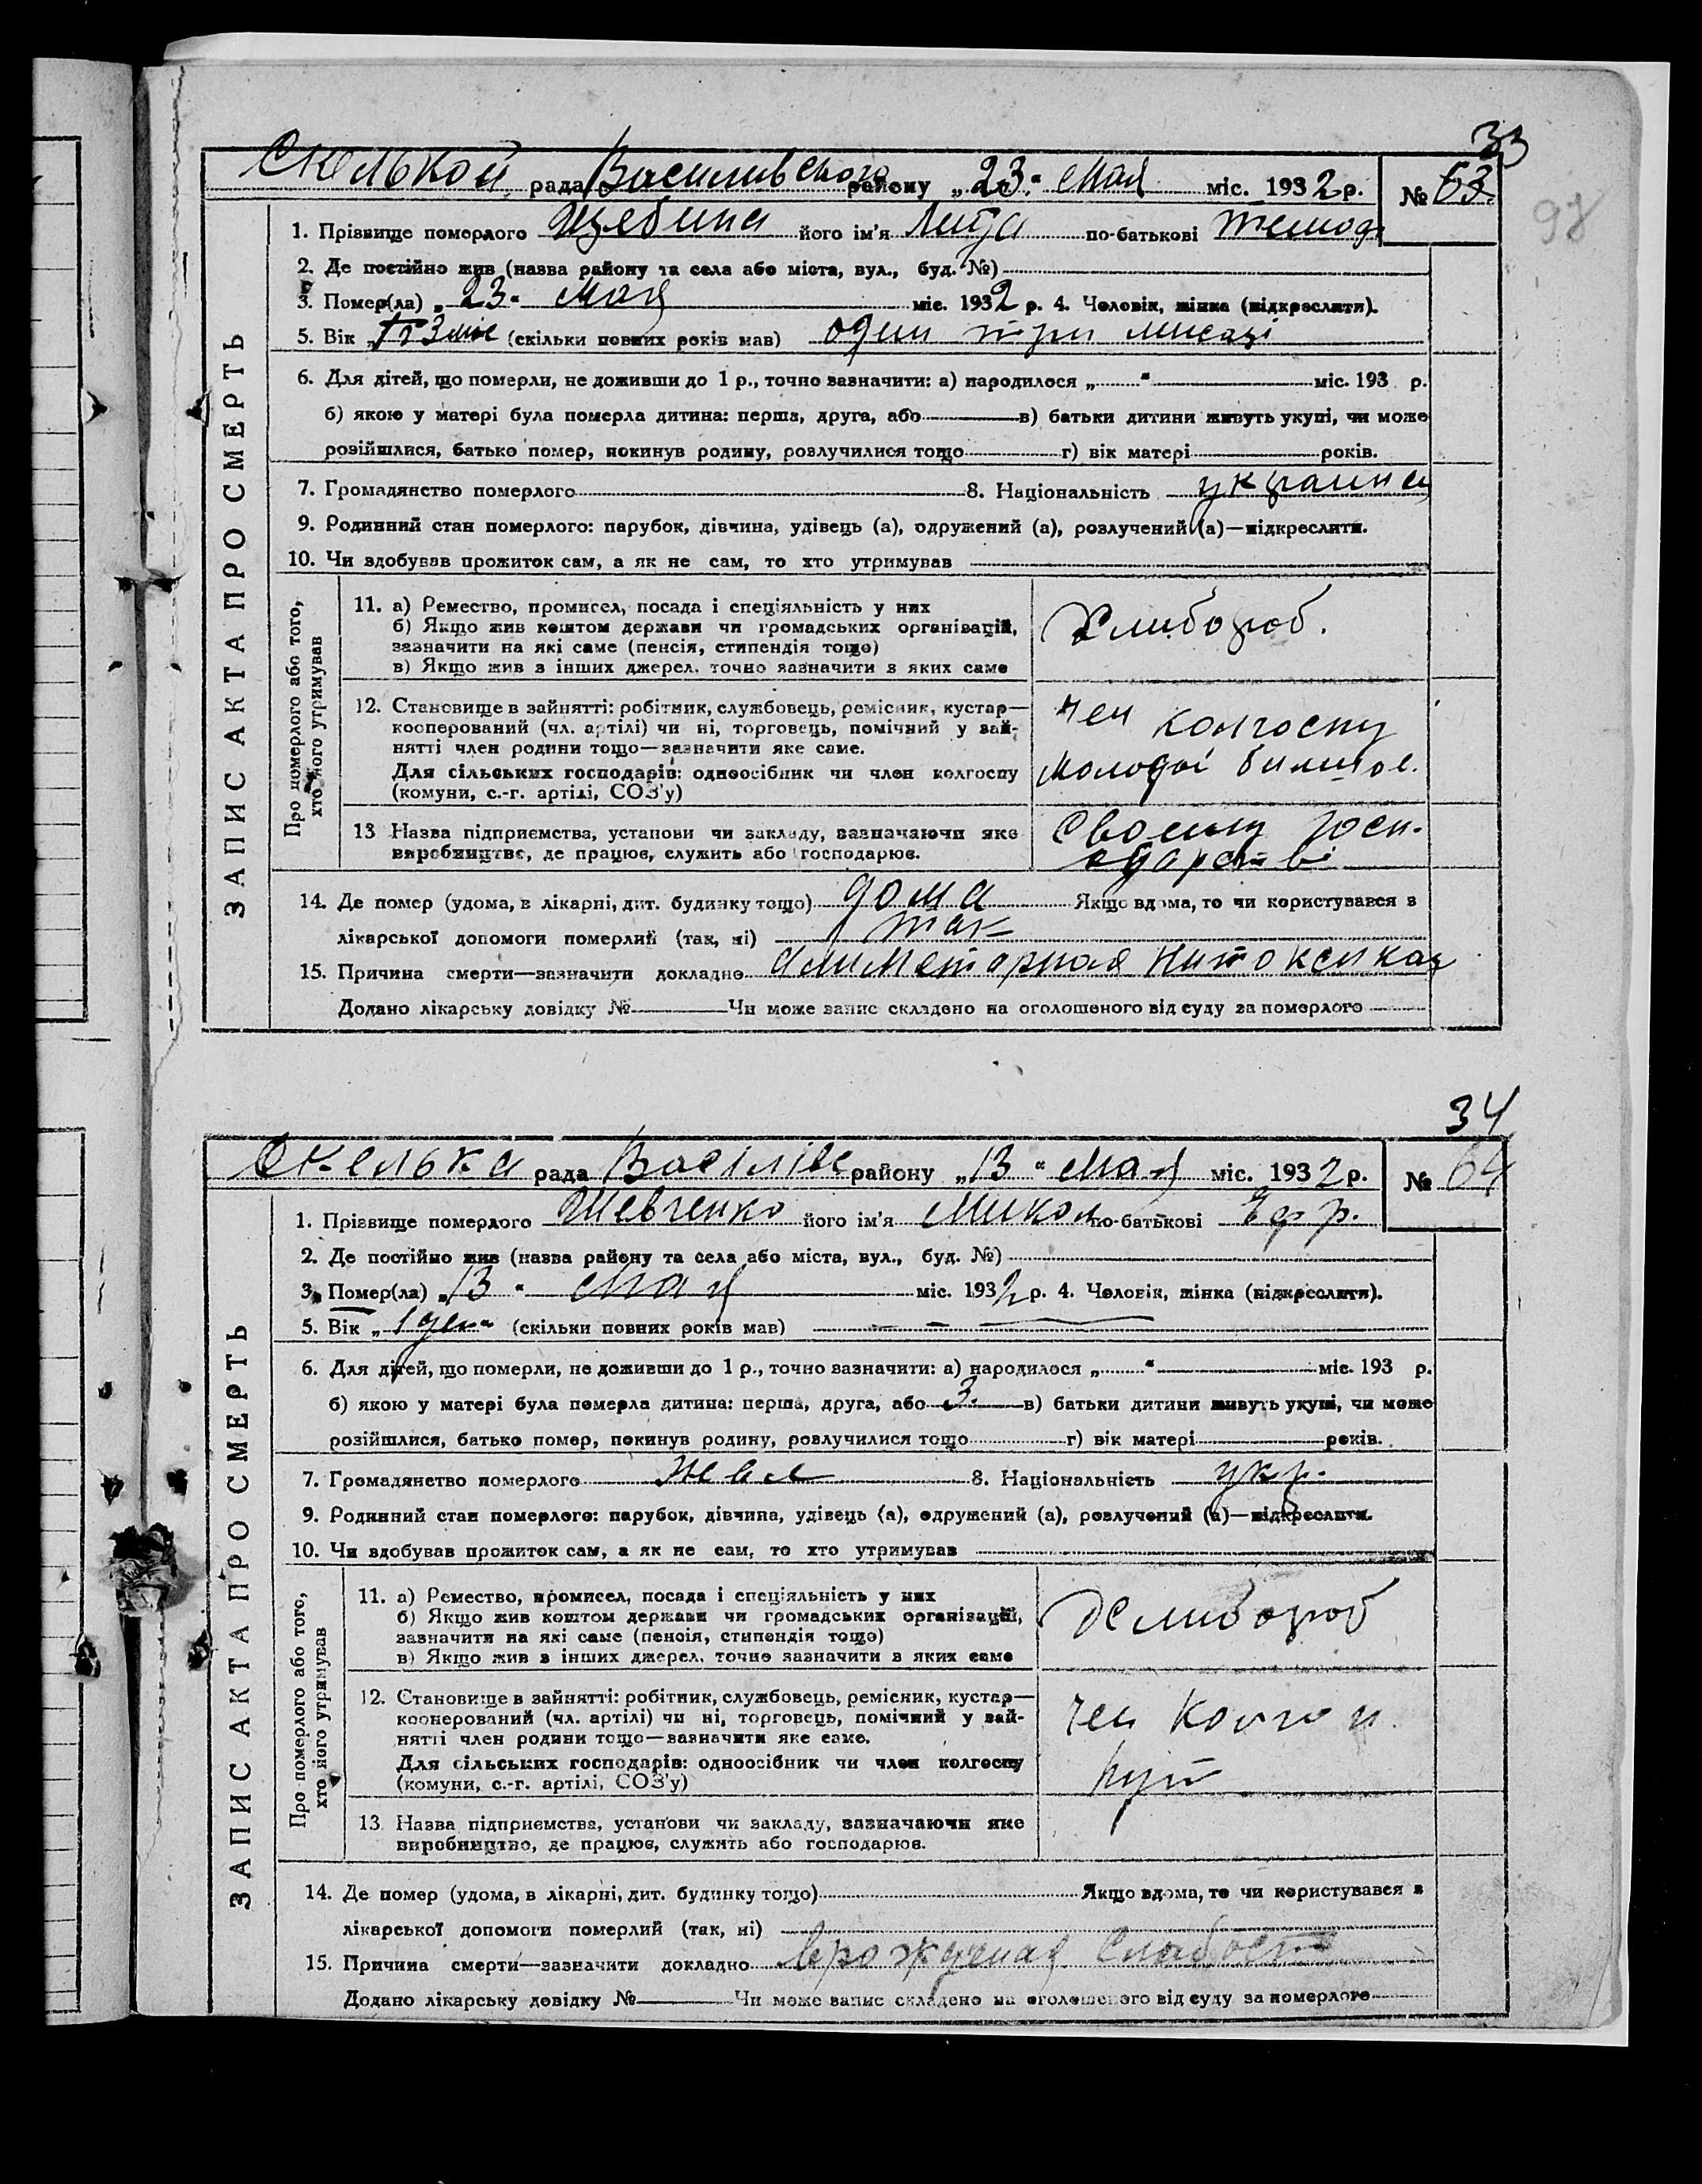 33
Скелькой рада Василивского району „23“ Мая міс. 1932 р. № 63
98
ЗАПИС АКТА ПРО СМЕРТЬ
1. Прізвище померлого його ім'я Лида по-батькові
2. Де постійно жив (назва району та села або міста, вул., буд. №)
3. Помер(ла) „23“ Мая міс. 1932 р. 4. Чоловік, жінка (підкреслити).
5. Вік (скільки повних років мав) один три мисаці
6. Для дітей, що померли, не доживши до 1 р., точно зазначити: а) народилося „ “ міс. 193 р.
б) якою у матері була померла дитина: перша, друга, або в) батьки дитини живуть укупі, чи може
розійшлися, батько помер, покинув родину, розлучилися тощо г) вік матері років.
7. Громадянство померлого 8. Національність украинка
9. Родинний стан померлого: парубок, дівчина, удівець (а), одружений (а), розлучений (а)—підкреслити.
10. Чи здобував прожиток сам, а як не сам, то хто утримував
Про померлого або того,
хто його утримував
11. а) Ремество, промисел, посада і спеціяльність у них
б) Якщо жив коштом держави чи громадських організацій,
зазначити на які саме (пенсія, стипендія тощо)
в) Якщо жив з інших джерел, точно зазначити з яких саме
Хлибороб.
12. Становище в зайнятті: робітник, службовець, ремісник, кустар—
кооперований (чл. артілі) чи ні, торговець, помічний у зай-
нятті член родини тощо—зазначити яке саме.
Для сільських господарів: одноосібник чи член колгоспу
(комуни, с.-г. артілі, СОЗ'у)
чен колгоспу
Молодой
13 Назва підприємства, установи чи закладу, зазначаючи яке
виробництво, де працює, служить або господарює.
Своему госп-
одарстві
14. Де помер (удома, в лікарні, дит. будинку тощо) дома Якщо вдома, то чи користувався з
лікарської допомоги померлий (так, ні) так
15. Причина смерти—зазначити докладно
Додано лікарську довідку № Чи може запис складено на оголошеного від суду за померлого
34
Скелька рада Василівс району „13“ Мая міс. 1932 р. № 64
ЗАПИС АКТА ПРО СМЕРТЬ
1. Прізвище померлого Шевченко його ім'я Микола по-батькові Єфр.
2. Де постійно жив (назва району та села або міста, вул., буд. №)
3. Помер(ла) „13“ Мая міс. 1932 р. 4. Чоловік, жінка (підкреслити).
5. Вік „1 ден“ (скільки повних років мав)
6. Для дітей, що померли, не доживши до 1 р., точно зазначити: а) народилося „ “ міс. 193 р.
б) якою у матері була померла дитина: перша, друга, або 3. в) батьки дитини живуть укупі, чи може
розійшлися, батько помер, покинув родину, розлучилися тощо г) вік матері років.
7. Громадянство померлого 8. Національність укр.
9. Родинний стан померлого: парубок, дівчина, удівець (а), одружений (а), розлучений (а)—підкреслити.
10. Чи здобував прожиток сам, а як не сам, то хто утримував
Про померлого або того,
хто його утримував
11. а) Ремество, промисел, посада і спеціяльність у них
б) Якщо жив коштом держави чи громадських організацій,
зазначити на які саме (пенсія, стипендія тощо)
в) Якщо жив з інших джерел, точно зазначити з яких саме
Хлибороб
12. Становище в зайнятті: робітник, службовець, ремісник, кустар—
кооперований (чл. артілі) чи ні, торговець, помічний у зай-
нятті член родини тощо—зазначити яке саме.
Для сільських господарів: одноосібник чи член колгоспу
(комуни, с.-г. артілі, СОЗ'у)
чен
13 Назва підприємства, установи чи закладу, зазначаючи яке
виробництво, де працює, служить або господарює.
14. Де помер (удома, в лікарні, дит. будинку тощо) Якщо вдома, то чи користувався з
лікарської допомоги померлий (так, ні)
15. Причина смерти—зазначити докладно врожденая слабость
Додано лікарську довідку № Чи може запис складено на оголошеного від суду за померлого